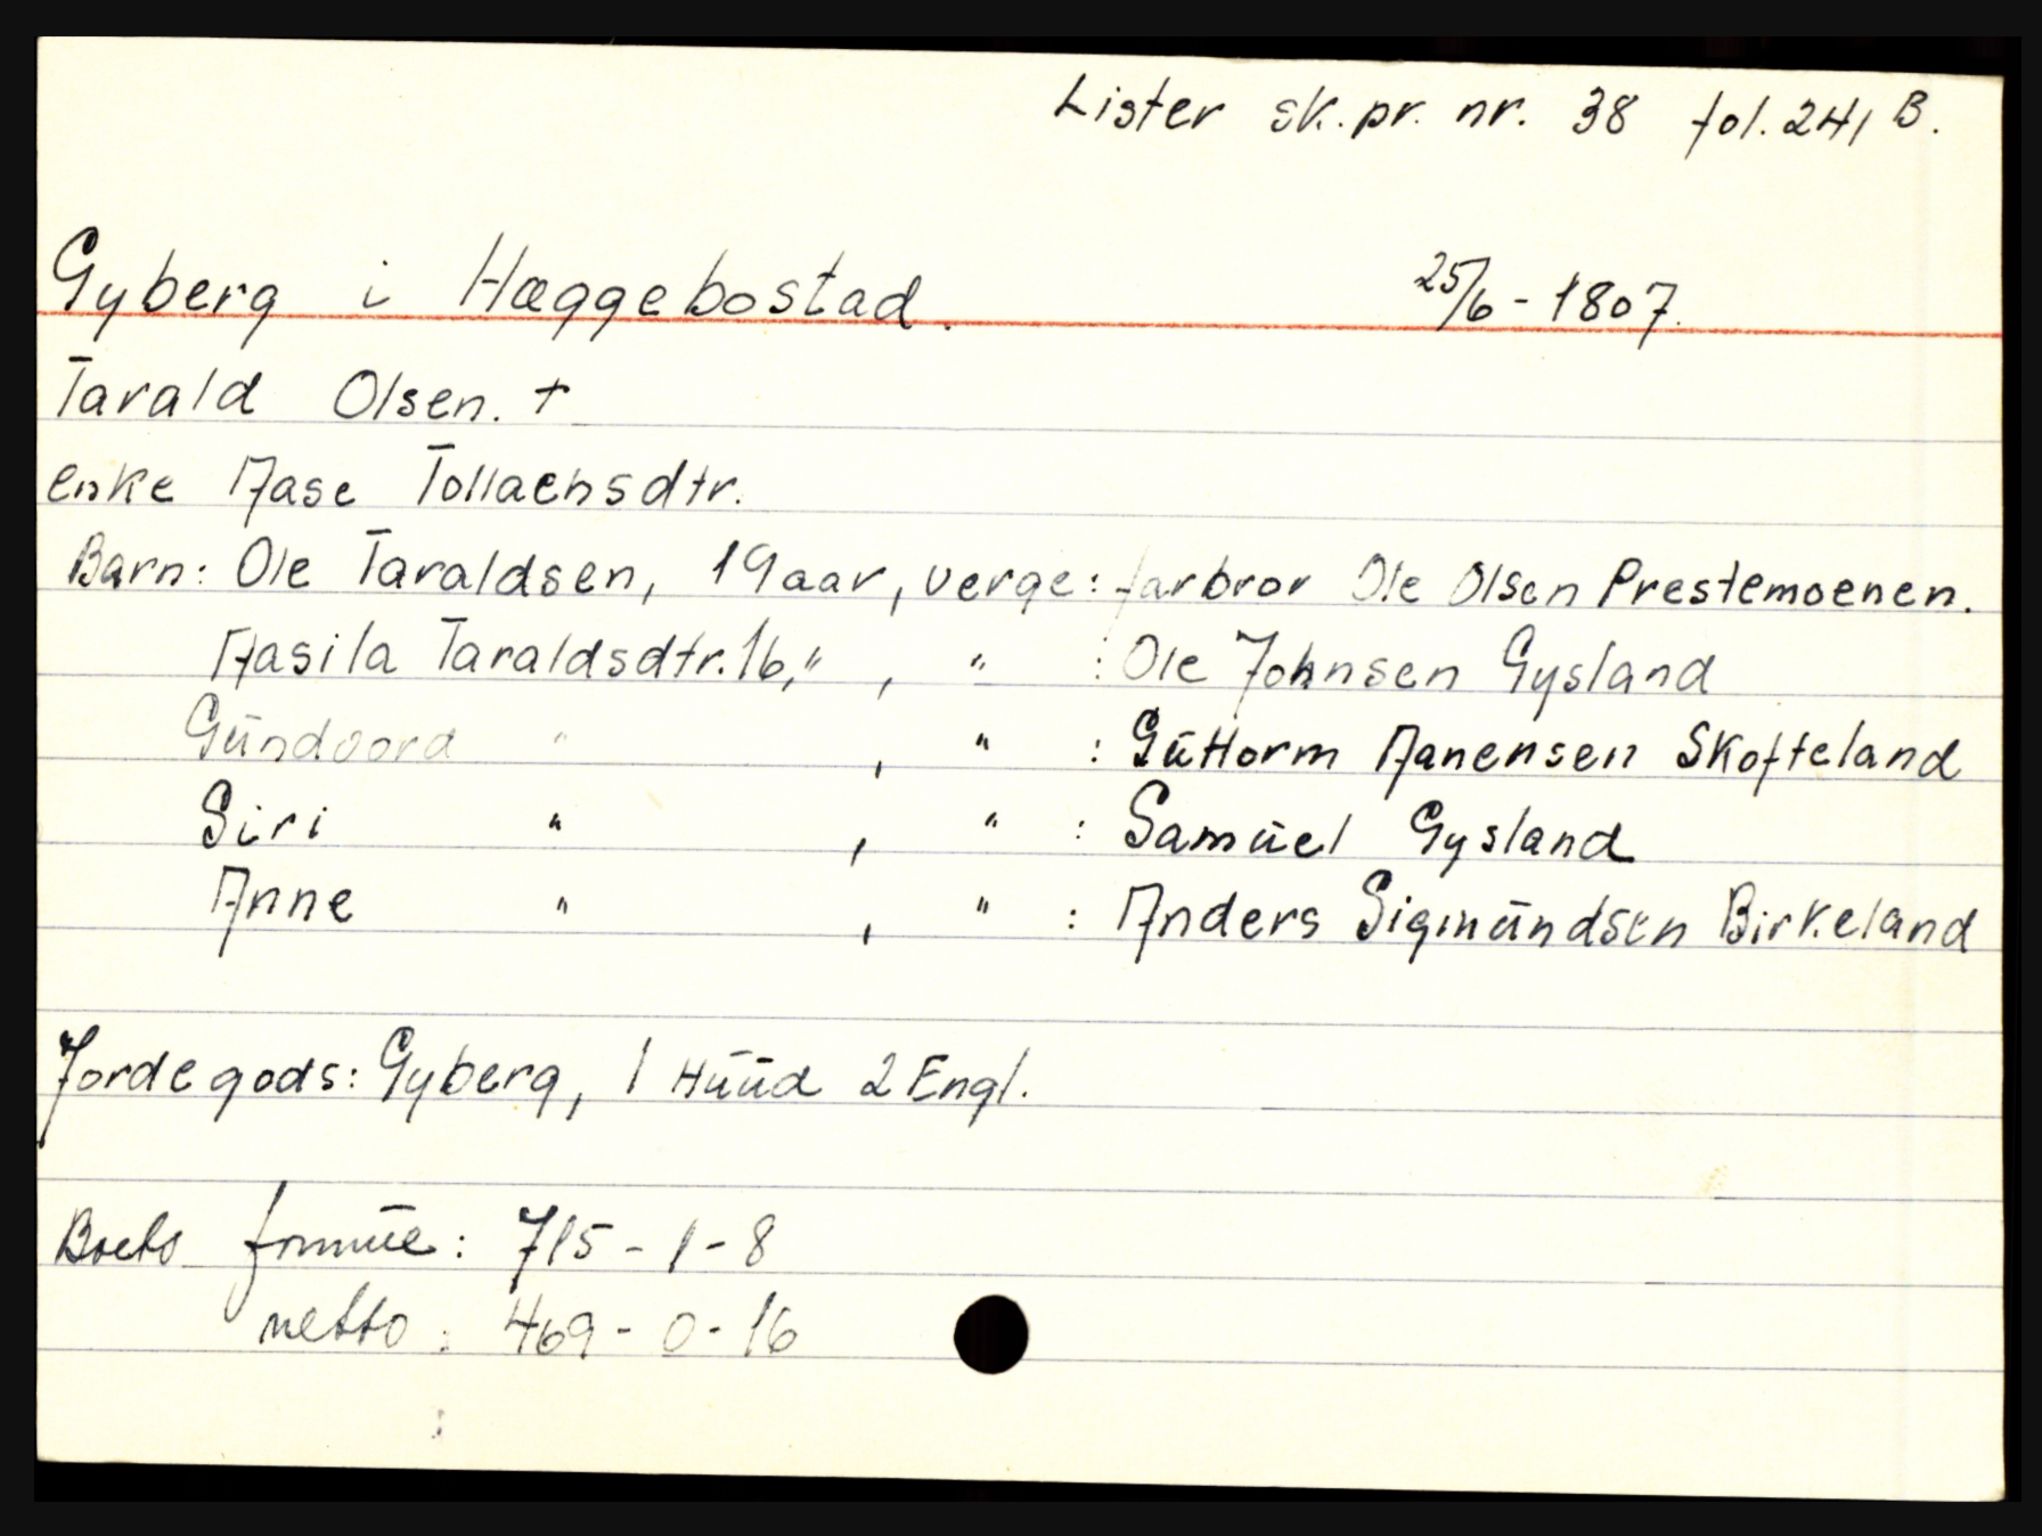 Lister sk.pr. nr. 38 fol. 241 B.
Gyberg i Hæggebostad. 25/6-1807.
Tarald Olsen. +
enke Aase Tollaensdtr.
Barn: Ole Taraldsen, 19 aar, verge: farbror Ole Olsen Prestemoenen.
Aasila Taraldsdtr. 16, " , " : Ole Johnsen Gysland
Gŭndoora " , " : Gŭttorm Aanensen Skofteland
Siri " , " : Samŭel Gysland
Anne " , " : Anders Sigmŭndsen Birkeland
Jordegods: Gyberg, 1 Hŭŭd 2 Engl.
Boets formŭe: 715-1-8
netto: 469-0-16